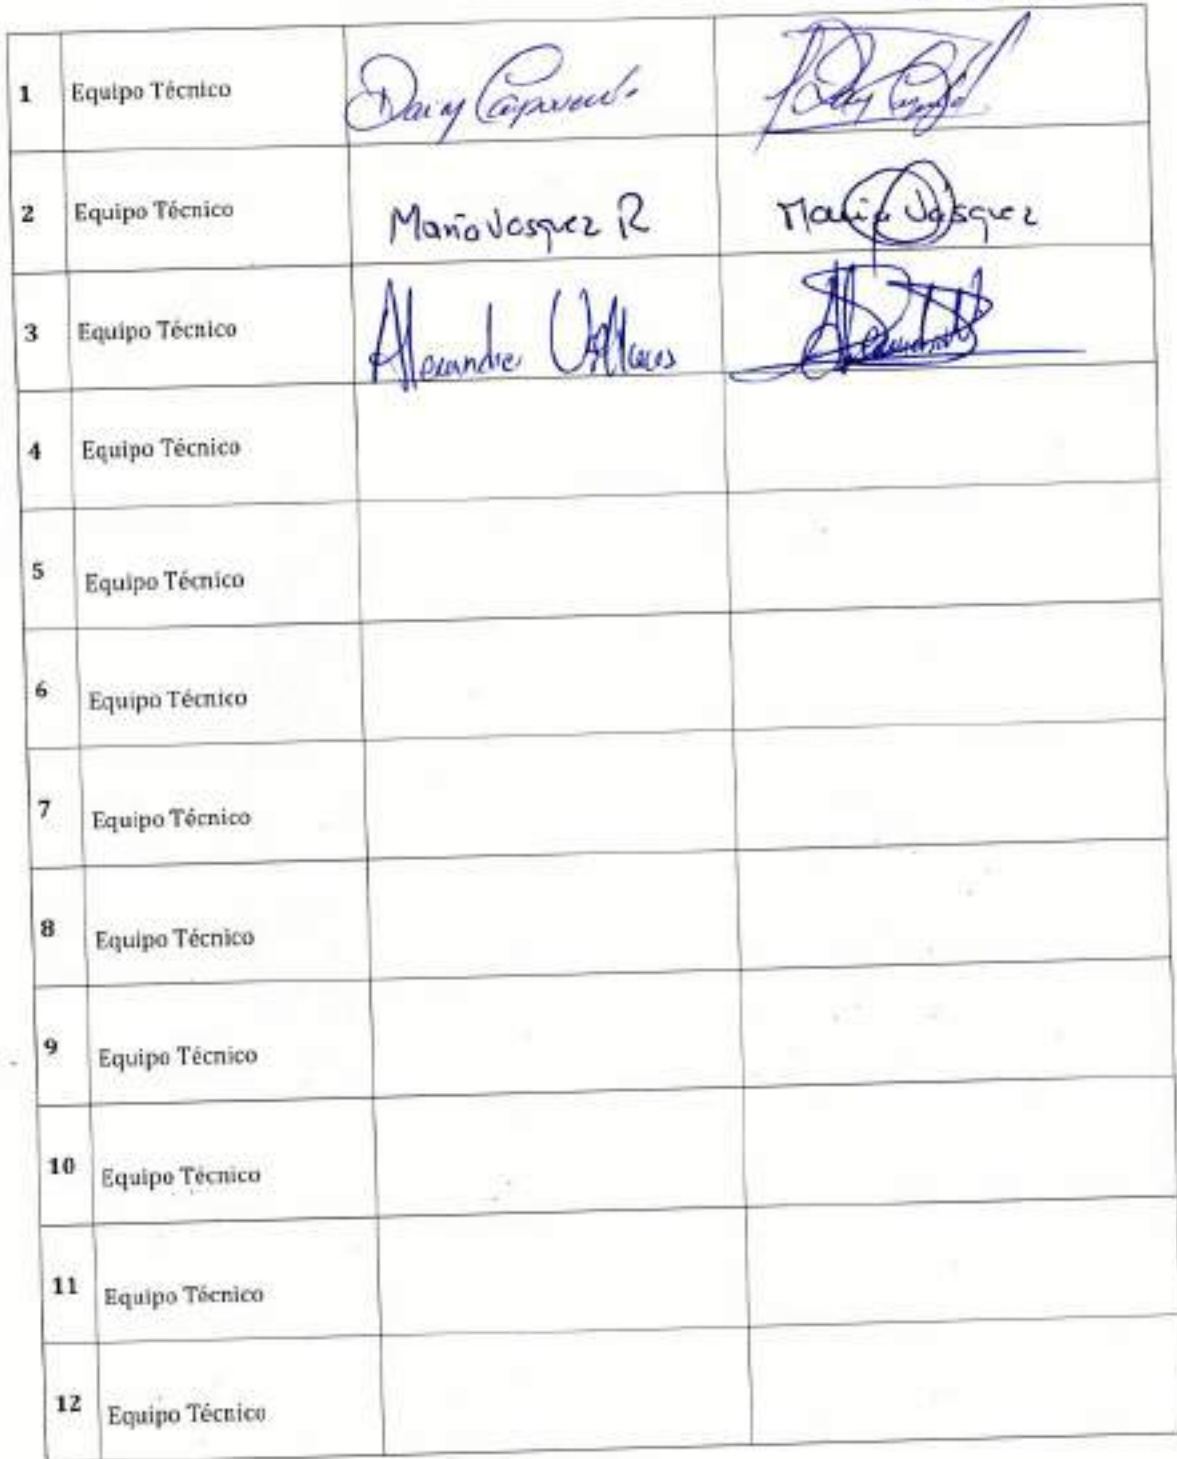 1 Equipo Técnico Daisy
2 Equipo Técnico Maria Vasquez R Maria Vasquez
3 Equipo Técnico
4 Equipo Técnico
5 Equipo Técnico
6 Equipo Técnico
7 Equipo Técnico
8 Equipo Técnico
9 Equipo Técnico
10 Equipo Técnico
11 Equipo Técnico
12 Equipo Técnico